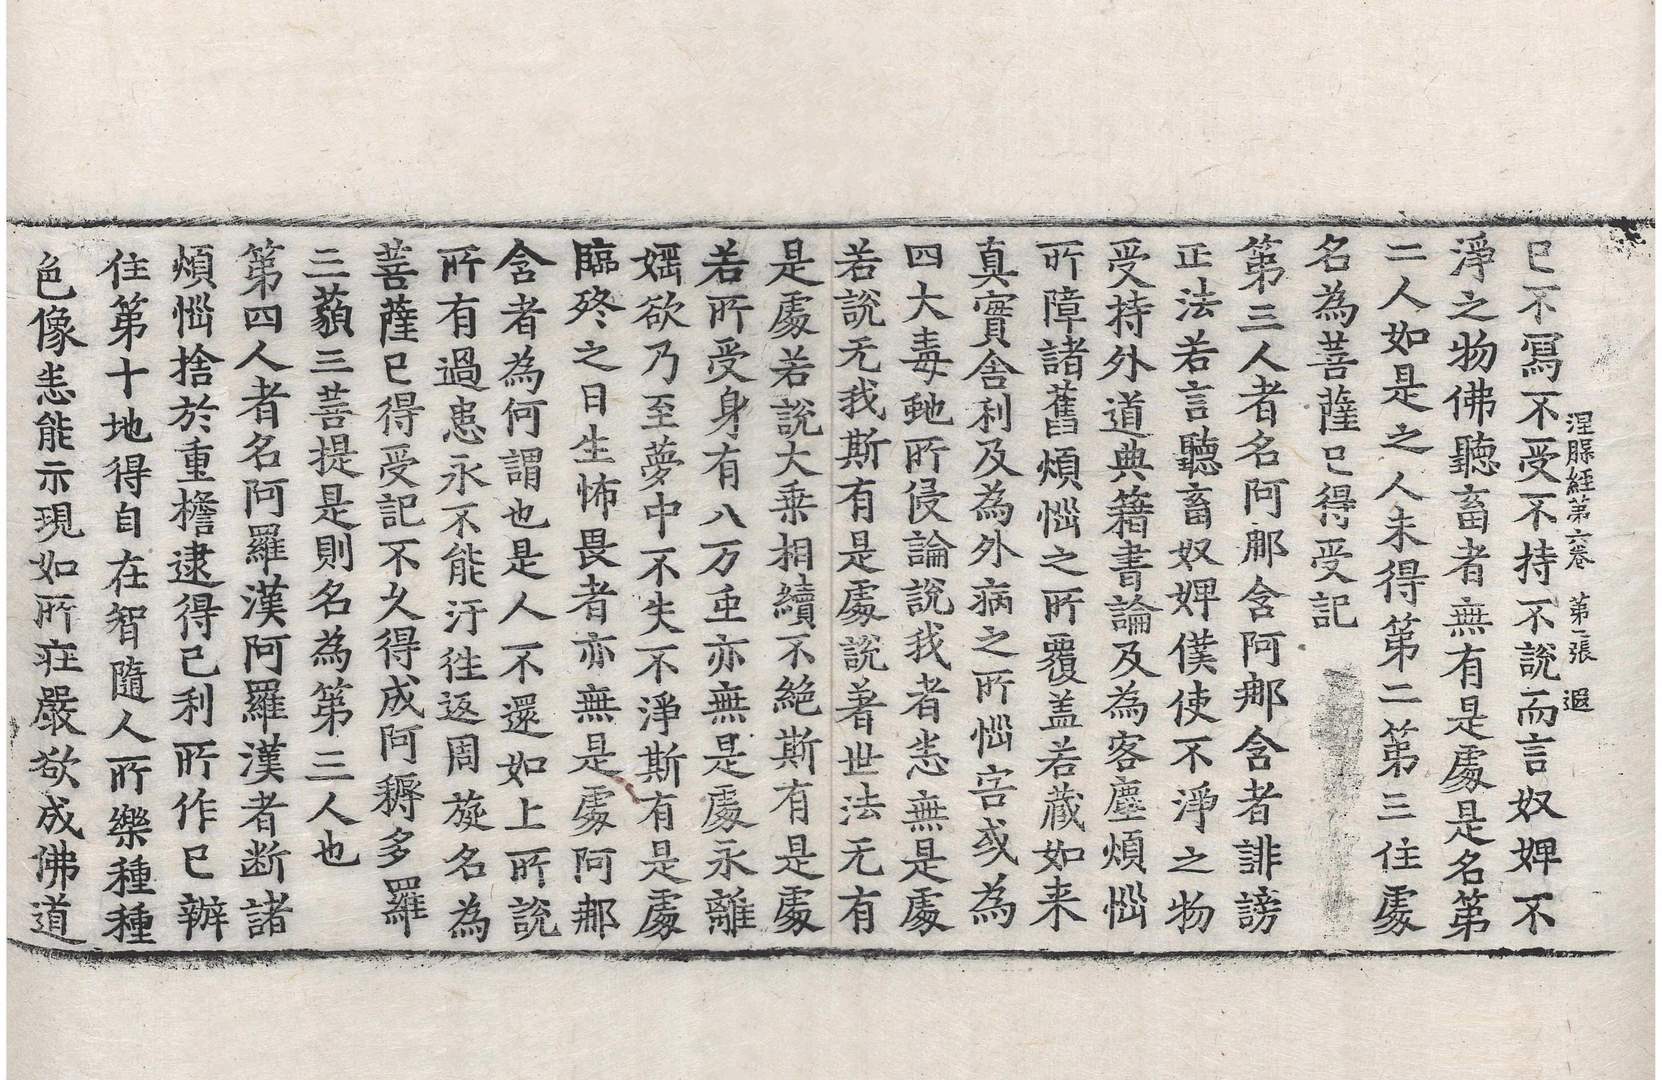 涅槃經第六卷 第二張 遐
已不寫不受不持不說而言奴婢不
淨之物佛聽畜者無有是處是名第
二人如是之人未得第二第三住處
名為菩薩已得受記
第三人者名阿那含阿那含者誹謗
正法若言聽畜奴婢僕使不淨之物
受持外道典籍書論及為客塵煩惱
所障諸舊煩惱之所覆盖若藏如来
真實舍利及為外病之所惱害或為
四大毒虵所侵論說我者悉無是處
若說无我斯有是處說著世法无有
是處若說大乗相續不絶斯有是處
若所受身有八万虫亦無是處永離
婬欲乃至夢中不失不淨斯有是處
臨終之日生怖畏者亦無是處阿那
含者為何謂也是人不還如上所說
所有過患永不能汙徃返周旋名為
菩薩已得受記不久得成阿耨多羅
三藐三菩提是則名為第三人也
第四人者名阿羅漢阿羅漢者断諸
煩惱捨於重檐逮得己利所作已辦
住第十地得自在智隨人所樂種種
色像悉能示現如所莊嚴欲成佛道